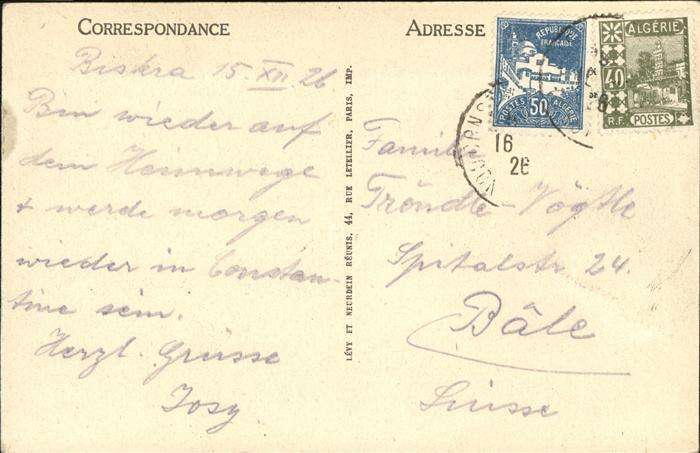 CORRESPONDANCE
ADRESSE
RÉPUBLIQUE
FRANÇAISE
50
POSTES ALGÉRIE
ALGÉRIE
40
R.F. POSTES
16
26
Biskra 15. XII 26
Bin wieder auf
dem Heimwege
+ werde morgen
wieder in Constan-
tine sein.
Herzl. Grüsse
Josy
LÉVY ET NEURDEIN RÉUNIS, 44, RUE LETELLIER, PARIS, IMP.
Familie
Tröndle-Vögtle
Spitalstr. 24.
Bâle
Suisse